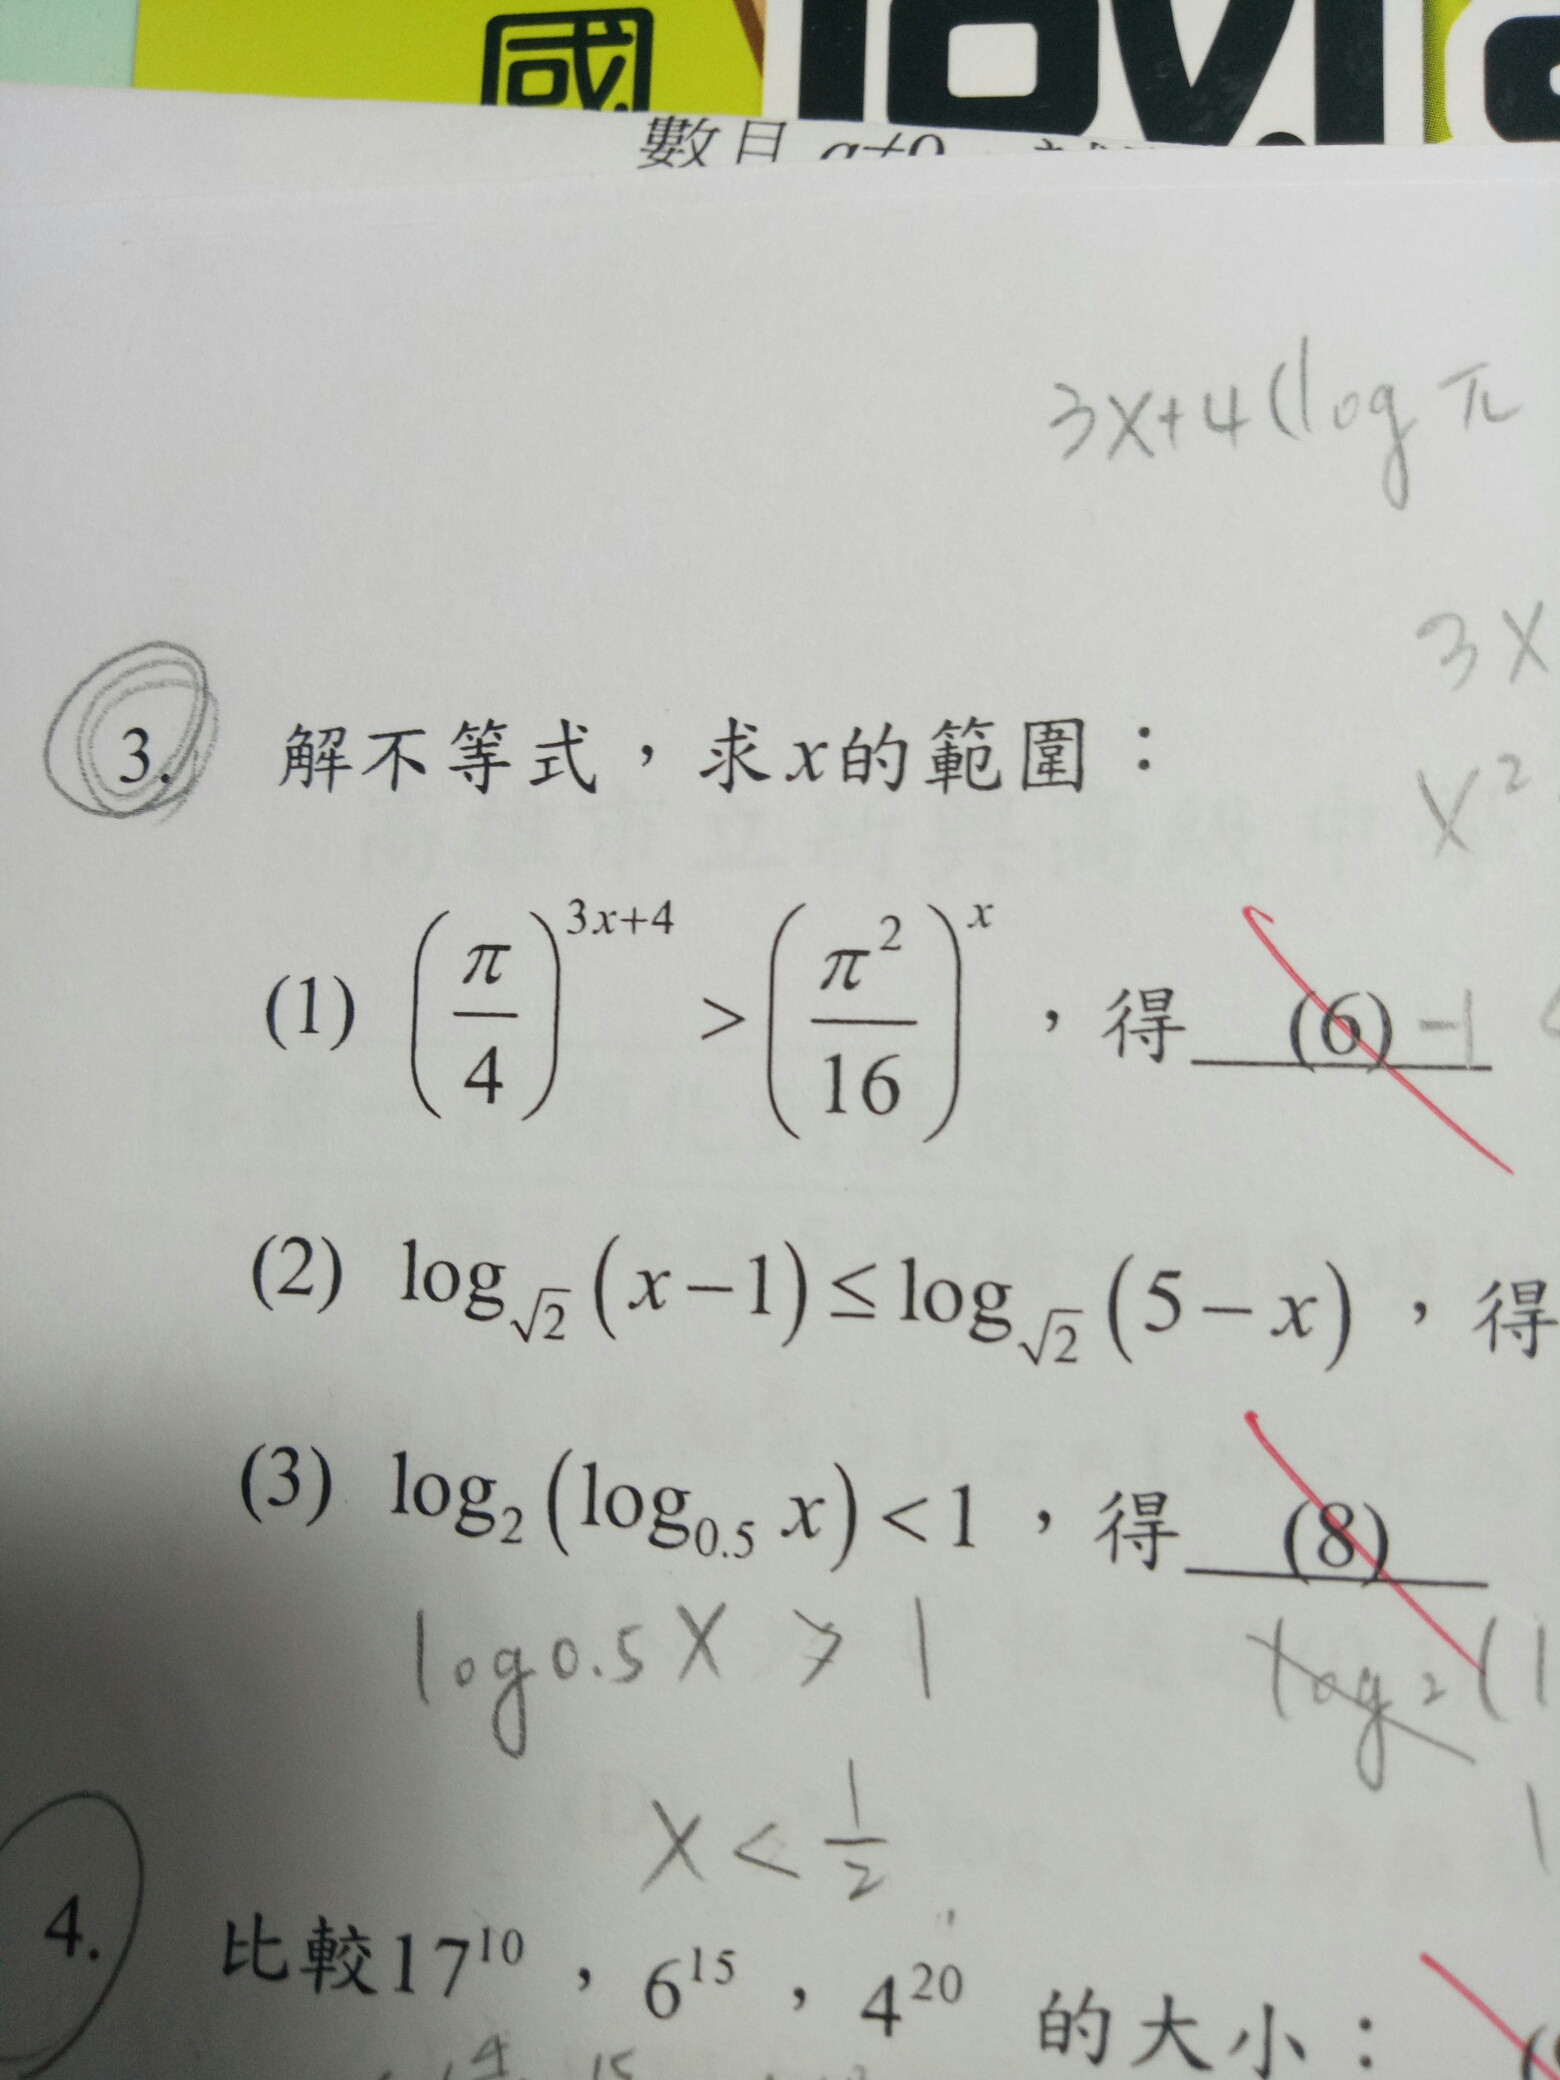 國
數 且 a≠0
3x+4(log π
3x
3. 解不等式，求x的範圍：
x²
(1) (π/4)^(3x+4) > (π²/16)^x ，得 (6) -1
(2) log_√2 (x−1) ≤ log_√2 (5−x) ，得
(3) log₂(log₀.₅ x) < 1 ，得 (8)
log0.5 x > 1
log₂(1
x < 1/2
4. 比較17¹⁰，6¹⁵，4²⁰ 的大小：